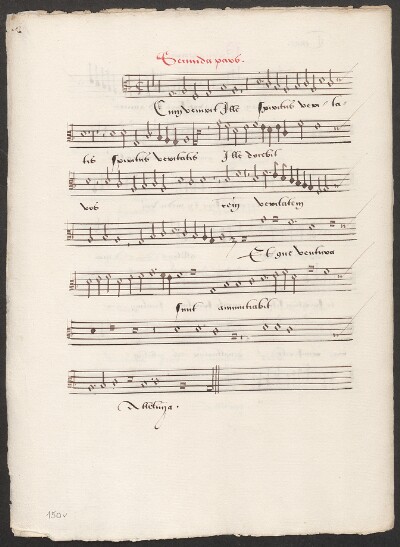 Secunda pars.
Cum venerit Ille spiritus verita-
tis spiritus veritatis Ille docebit
vos veritatem
Et que ventura
sunt annuntiabit
Alleluya.
150v